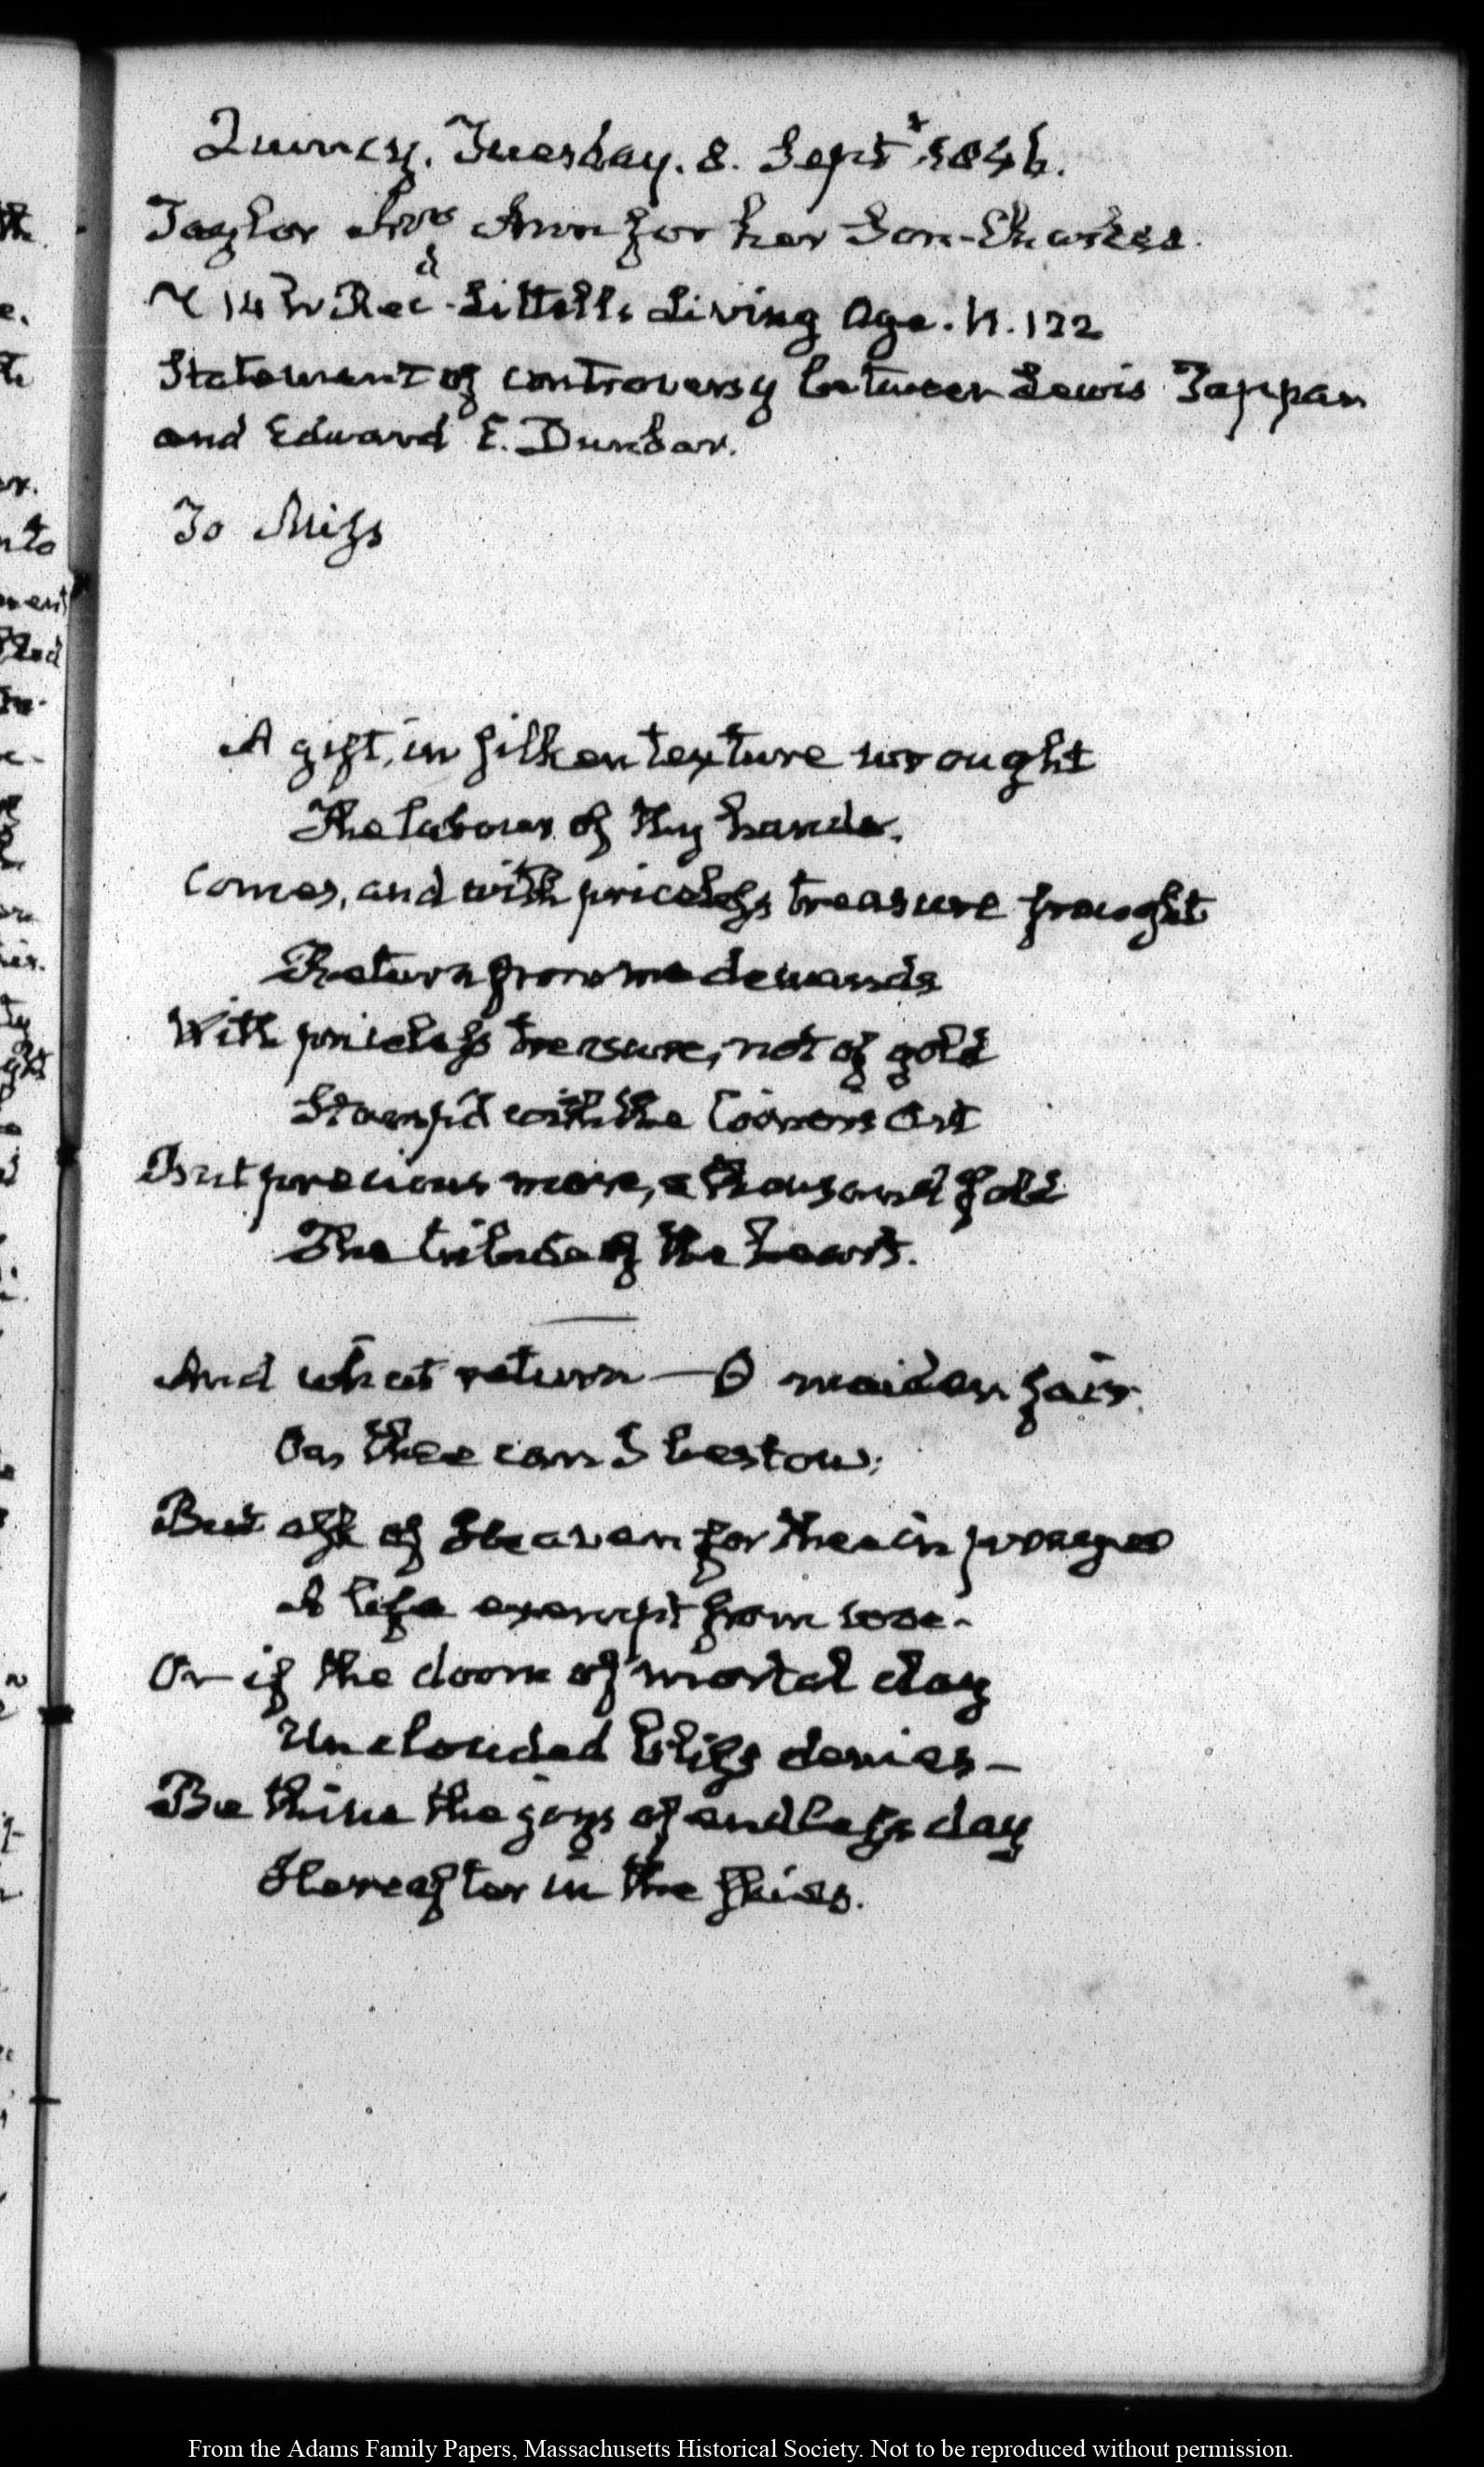 Quincy. Tuesday. 8. Sept.r 1846.
Taylor Mrs Ann for her Son-Charles.
14 Rec.d Littell's Living Age. N. 122
Statement of controversy between Lewis Tappan
and Edward E. Dunbar.
To Miss
A gift, in silken texture wrought
The labour of thy hands.
Comes, and with priceless treasure fraught
Return from me demands
With priceless treasure, not of gold
Stamp'd with the Coiner's Art
But precious more, a thousand fold
The tribute of the heart.
And what return—O maiden fair.
On thee can I bestow;
But ask of Heaven for thee in prayer
A life exempt from woe-
Or if the doom of mortal clay
Unclouded bliss denies—
Be thine the joys of endless day
Hereafter in the skies.
From the Adams Family Papers, Massachusetts Historical Society. Not to be reproduced without permission.